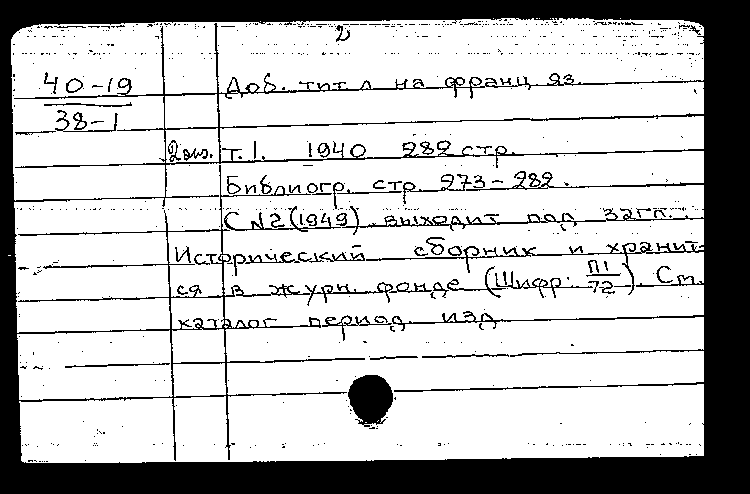 2
40-19
38-1
Доб. тит. л на франц яз.
2 экз. т. 1. 1940 282 стр.
Библиогр. стр 273-282.
С №2 (1949) выходит под загл.:
Исторический сборник и хранит-
ся в журн. фонде (Шифр: П1/72). См.
каталог период. изд